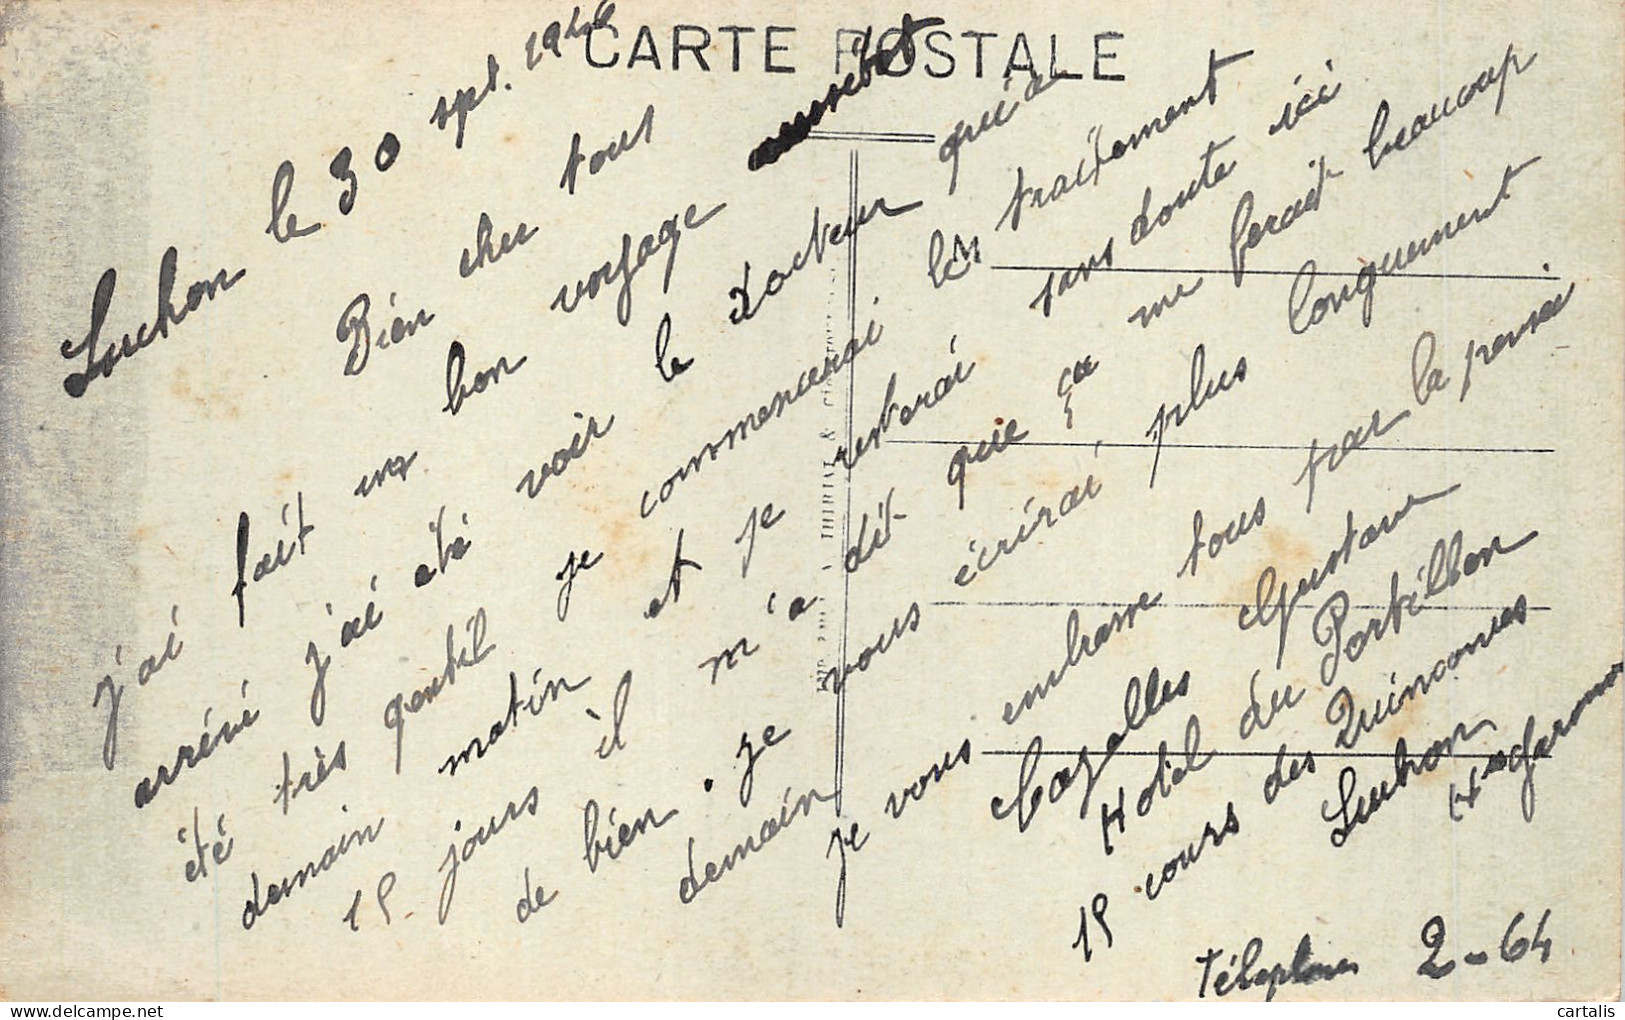 CARTE POSTALE
Luchon le 30 spt. 1946
Bien cher tous
j'ai fait un bon voyage aussitôt
arrivé j'ai été voir le docteur qui a
été très gentil je commencerai le traitement
demain matin et je resterai sans doute ici
15 jours il m'a dit que ça me ferait beaucoup
de bien. je vous écrirai plus longuement
demain
je vous embrasse tous par la pensée
Cazelles Gustave
Hotel du Portillon
15 cours des Quinconces
Luchon
Hte Garonne
Téléphone 2-64
cartalis